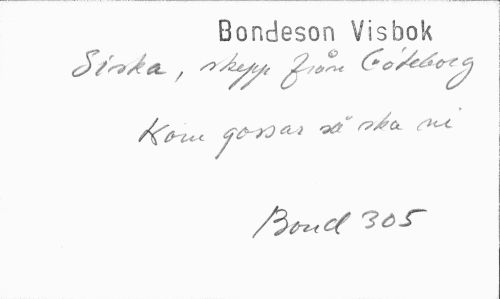 Bondeson Visbok
Siska, skepp från Göteborg
Kom gossar så ska ni
Bond 305